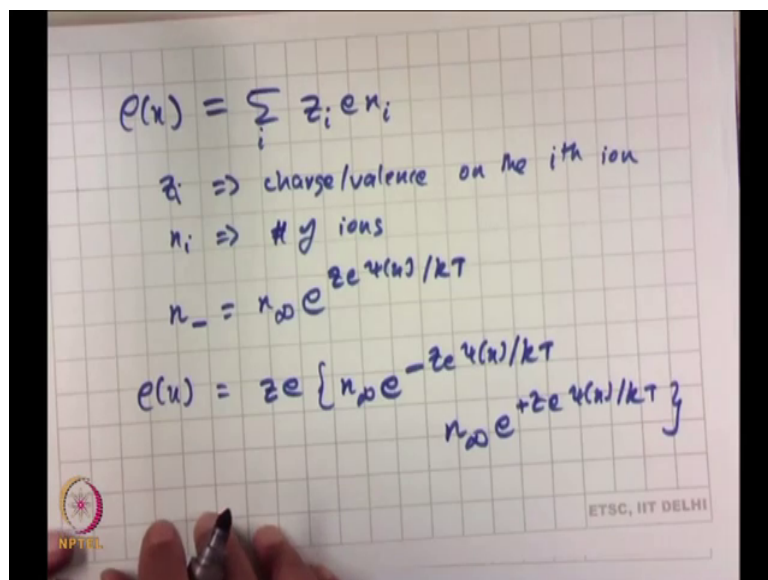 ρ(x) = Σ_i z_i e n_i
z_i ⇒ charge/valence on the ith ion
n_i ⇒ # of ions
n_- = n_∞ e^{ze ψ(x)/kT}
ρ(x) = ze { n_∞ e^{-ze ψ(x)/kT}
n_∞ e^{+ze ψ(x)/kT} }
ETSC, IIT DELHI
NPTEL